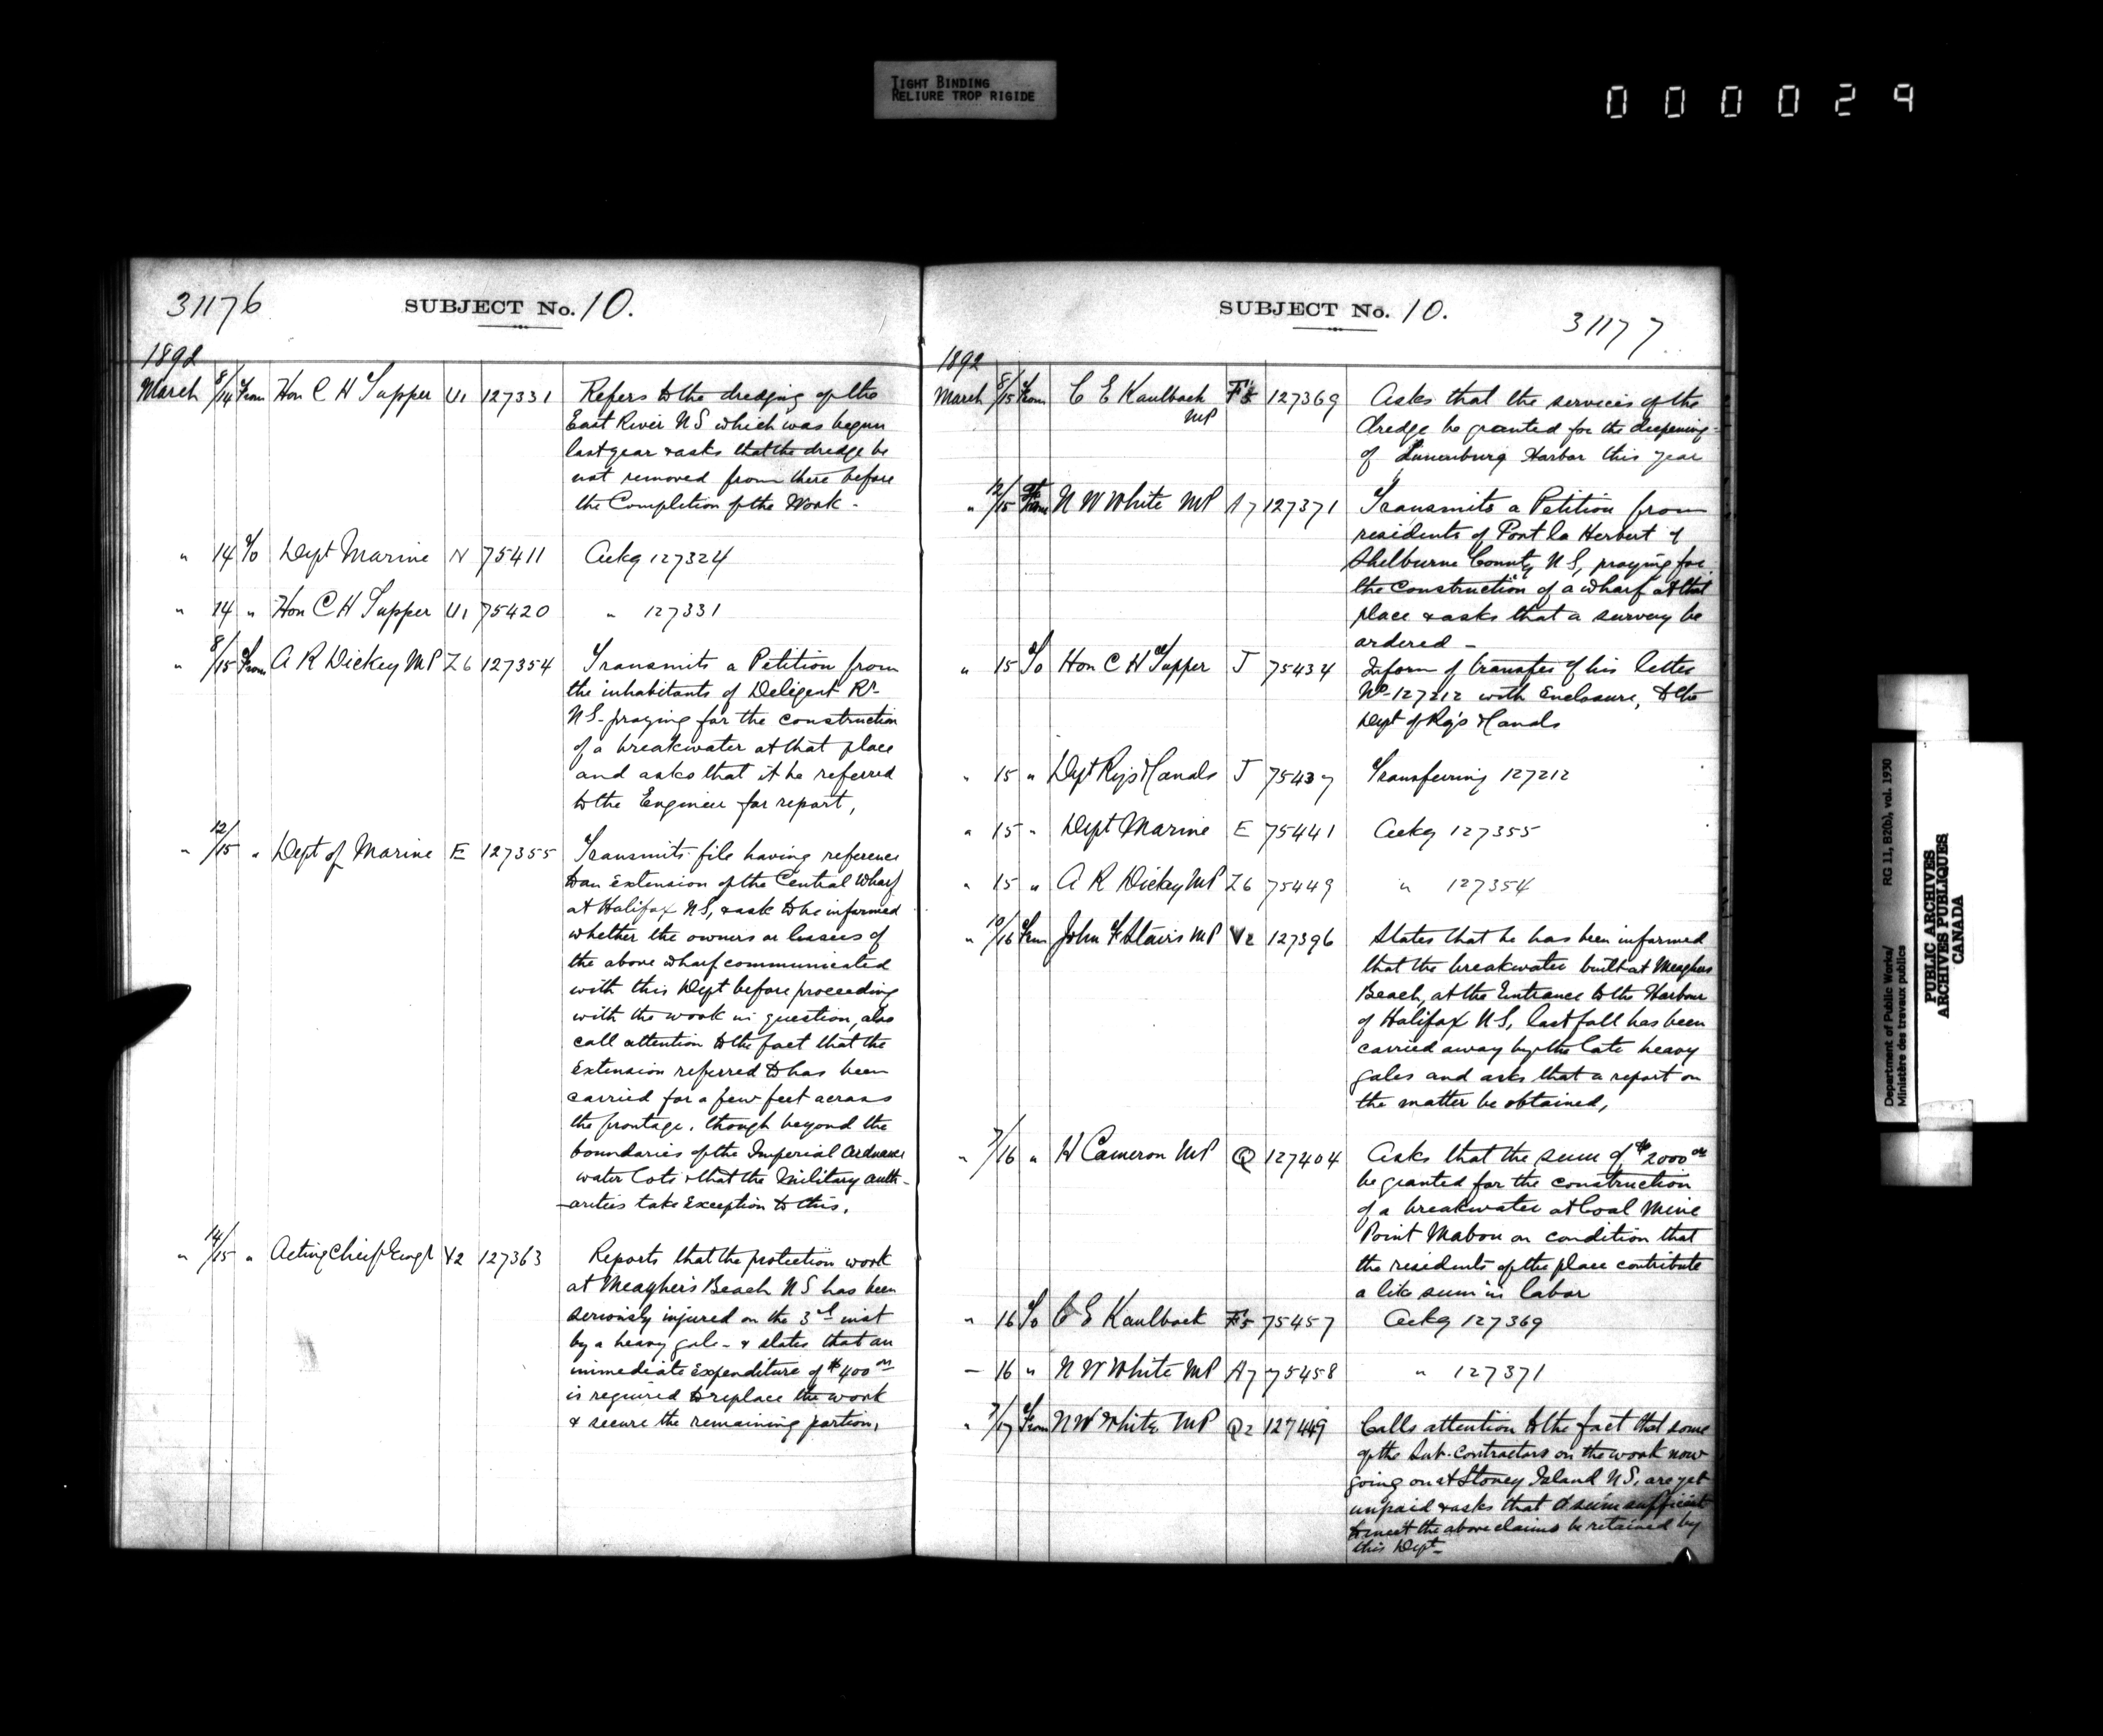 TIGHT BINDING
RELIURE TROP RIGIDE
000029
31176
SUBJECT No. 10.
1892
March 8/14 From Hon C H Tupper U1 127331 Refers to the dredging of the
East River N S which was begun
last year & asks that the dredge be
not removed from there before
the Completion of the Work -
" 14 To Dept Marine N 75411 Ackg 127324
" 14 " Hon C H Tupper U1 75420 " 127331
" 8/15 From A R Dickey MP Z6 127354 Transmits a Petition from
the inhabitants of Deligent Rr
N S - praying for the construction
of a breakwater at that place
and asks that it be referred
to the Engineer for report,
" 12/15 " Dept of Marine E 127355 Transmits file having reference
to an extension of the Central Wharf
at Halifax N S, & ask to be informed
whether the owners or lessees of
the above wharf communicated
with this Dept before proceeding
with the work in question, also
call attention to the fact that the
Extension referred to has been
carried for a few feet across
the frontage, though beyond the
boundaries of the Imperial Ordnance
water lots & that the Military auth-
-orities take Exception to this.
" 14/15 " Acting Chief Eng'r V2 127363 Reports that the protection work
at Meagher's Beach N S has been
seriously injured on the 3rd inst
by a heavy gale - & states that an
immediate Expenditure of $400 00
is required to replace the work
& secure the remaining portion,
SUBJECT No. 10.
31177
1892
March 8/15 From C E Kaulbach F5 127369 Asks that the services of the
MP dredge be granted for the deepening
of Lunenburg Harbor this year
" 12/15 From N W White MP A7 127371 Transmits a Petition from
residents of Port la Herbert of
Shelburne County N S, praying for
the Construction of a wharf at that
place & asks that a survey be
ordered -
" 15 To Hon C H Tupper J 75434 Inform of transfer of his letter
No - 127212 with Enclosure, to the
Dept of Rys & Canals
" 15 " Dept Rys & Canals J 75437 Transferring 127212
" 15 " Dept Marine E 75441 Ackg 127355
" 15 " A R Dickey MP Z6 75449 " 127354
" 10/16 From John F Stairs MP V2 127396 States that he has been informed
that the breakwater built at Meaghers
Beach, at the Entrance to the Harbour
of Halifax N S, last fall has been
carried away by the late heavy
gales and asks that a report on
the matter be obtained,
" 7/16 " H Cameron MP Q 127404 Asks that the sum of $2000 00
be granted for the construction
of a breakwater at Coal Mine
Point Mabou on condition that
the residents of the place contribute
a like sum in labor
" 16 To C E Kaulbach F5 75457 Ackg 127369
- 16 " N W White MP A7 75458 " 127371
" 7/17 From N W White MP Q2 127449 Calls attention to the fact that some
of the Sub-Contractors on the work now
going on at Stoney Island N S, are yet
unpaid & asks that a sum sufficient
to meet the above claims be retained by
this Dept -
Department of Public Works/ RG 11, B2(b), vol. 1930
Ministère des travaux publics
PUBLIC ARCHIVES
ARCHIVES PUBLIQUES
CANADA